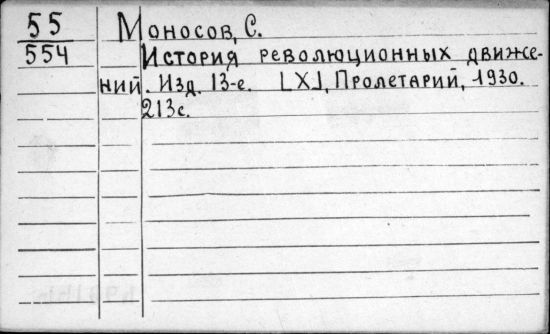 55
554
Моносов, С.
История революционных движе-
ний. Изд. 13-е. [Х], Пролетарий, 1930.
213с.